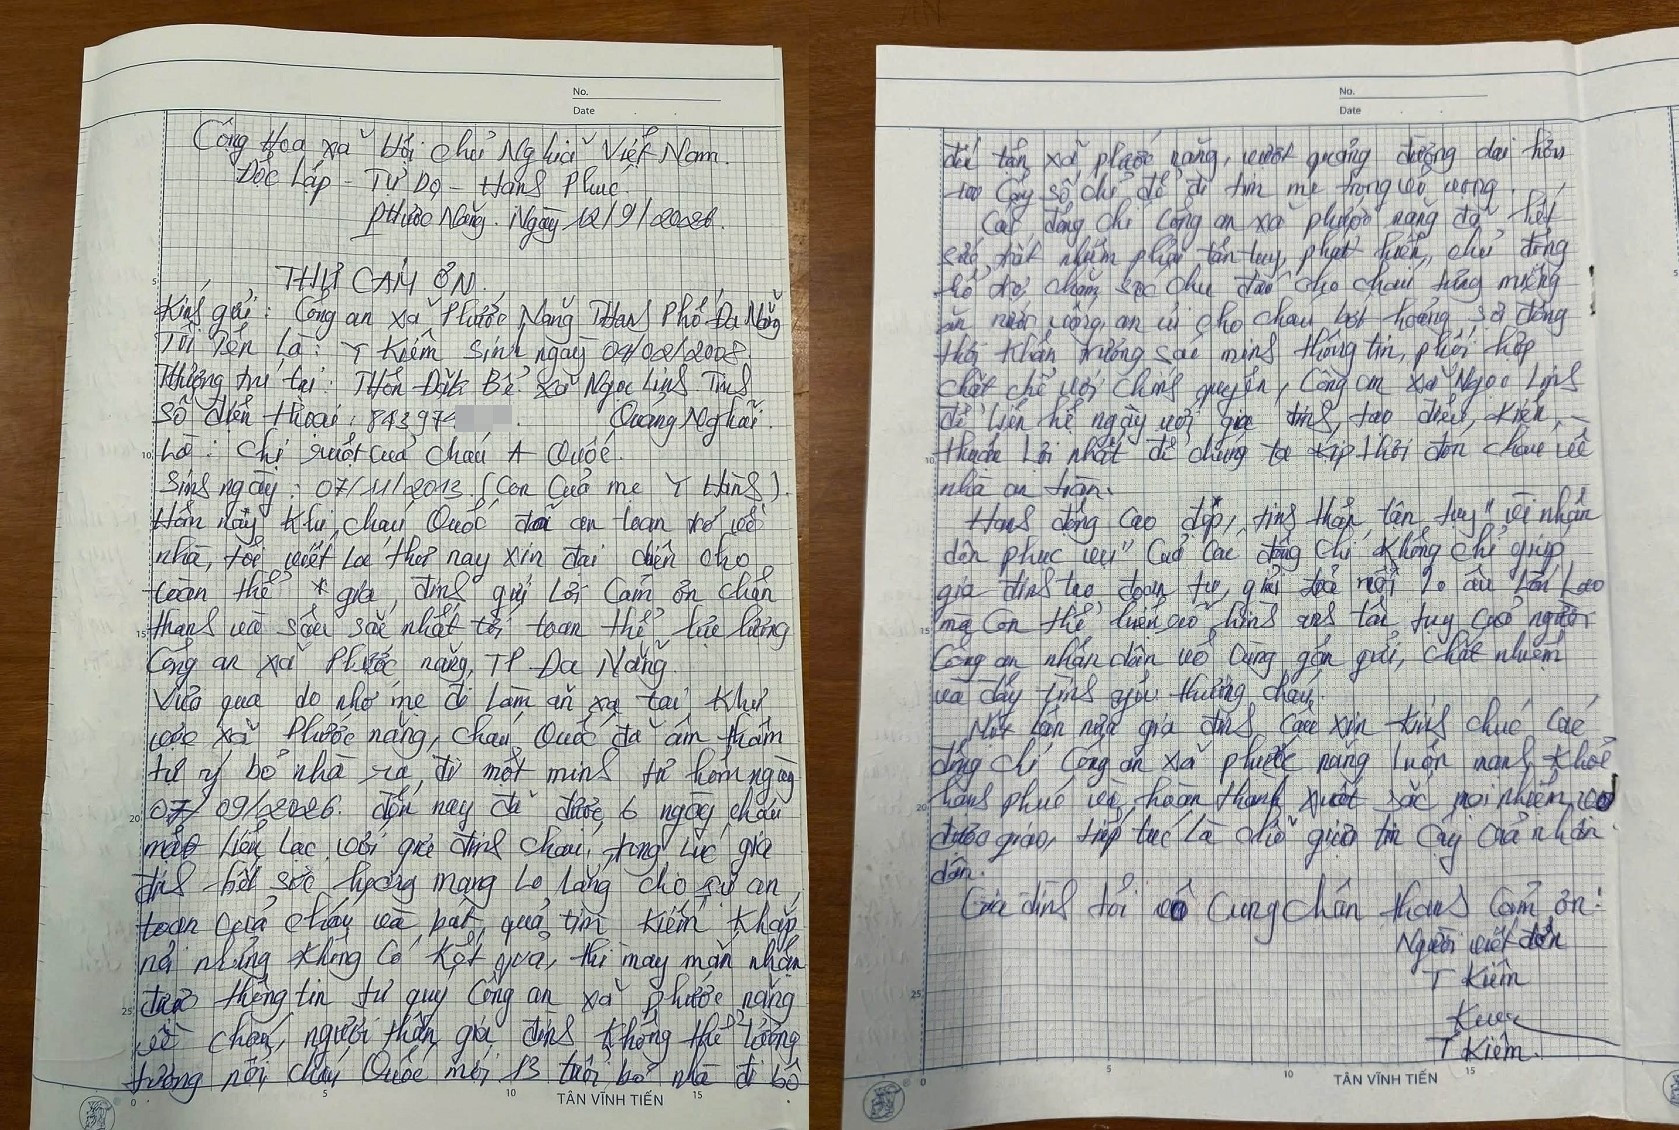 No.
Date
Cộng Hoa xã Hội chủ Nghĩa Việt Nam.
Độc Lập - Tự Do - Hanh Phuc.
Phước Năng. Ngày 12/9/2026.
THƯ CẢM ƠN.
Kính gửi: Công an xã Phước Năng Thành Phố Đà Nẵng
Tôi Tên Là: Y Kiêm Sinh ngày 04/02/2008.
Thường trú tại: Thôn Đăk Bể xã Ngọc Linh Tỉnh
Số điện thoại: 843974 Quảng Nghãi.
Là: Chị ruột của cháu A Quốc.
Sinh ngày: 07/11/2013. (Con Của mẹ Y Hinh).
Hôm nay khi cháu Quốc đã an toan trở về
nhà, tôi viết Lá thơ nay xin đại diện cho
toàn thể gia đình gửi Lời Cảm ơn chân
thành và sâu sắc nhất tới toan thể lực lượng
Công an xã Phước năng, TP Đa Nẵng.
Vừa qua do nhớ mẹ đi Làm ăn xa tại Khu
vực xã Phước năng, cháu Quốc đã âm thầm
tự ý bỏ nhà ra đi một minh từ hôm ngày
07/09/2026. đến nay đã được 6 ngày cháu
mất Liên Lạc với gia đình cháu, trong lúc gia
đình hết sức hoang mang Lo Lắng cho sự an
toan của cháu và bất quả tìm kiếm Khắp
nơi nhưng Không Có Kết quả, thì may mắn nhận
được thông tin từ quý Công an xã phước năng
về cháu, người thân gia đình Không thể Lường
tưởng nổi cháu Quốc mới 13 tuổi bỏ nhà đi bộ
TÂN VĨNH TIẾN
No.
Date
đế tận xã phước năng, vượt quãng đường dai hơn
100 Cây số chỉ để đi tìm mẹ trong vô vọng.
Cac đồng chí Công an xã phước năng đã hết
sức trách nhiệm phát tận tụy, phát hiện, chủ động
hỗ trợ chăm sóc chu đáo cho cháu từng miếng
ăn nước uống, an ủi cho cháu bớt hoảng sợ đồng
thời Khẩn trương sác minh thông tin, phối hợp
chặt chẽ với chính quyền, Công an xã Ngọc Linh
để Liên hệ ngay với gia đình, tạo điều Kiện
thuận Lời nhất để chúng tôi Kịp thời đón cháu về
nhà an toàn.
Hanh động Cao đẹp, tinh thần tân tuy" vì nhân
dân phuc vụ" Của Các đồng chí Không chỉ giúp
gia đình tao đoan tụ, giải toả nỗi Lo âu Lớn Lao
mà Còn thể hiện rõ hình anh tân tuy của người
Công an nhân dân vô Cùng gần gũi, chất nhiệm
và đầy tình yêu thương cháu.
Một lần nữa gia đình cháu xin kính chúc Các
đồng chí Công an xã phước năng Luôn manh Khoẻ
hanh phúc và hoàn thanh xuất sắc mọi nhiệm vụ
được giao, tiếp tục Là chỗ giữa tin cậy của nhân
dân.
Gia đình tôi vô Cùng chân thanh Cảm ơn!
Người viết đơn
Y Kiêm
Kiêm
Y Kiêm.
TÂN VĨNH TIẾN